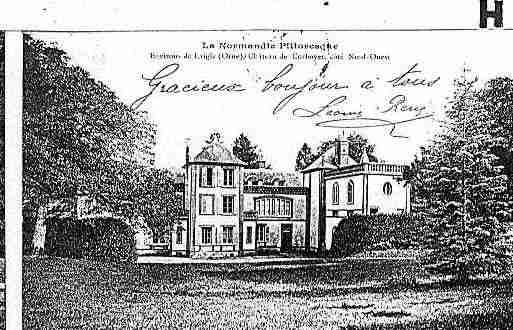 H
La Normandie Pittoresque
Environs de Laigle (Orne) Château de Corboyer, côté Nord-Ouest
Gracieux bonjour à tous